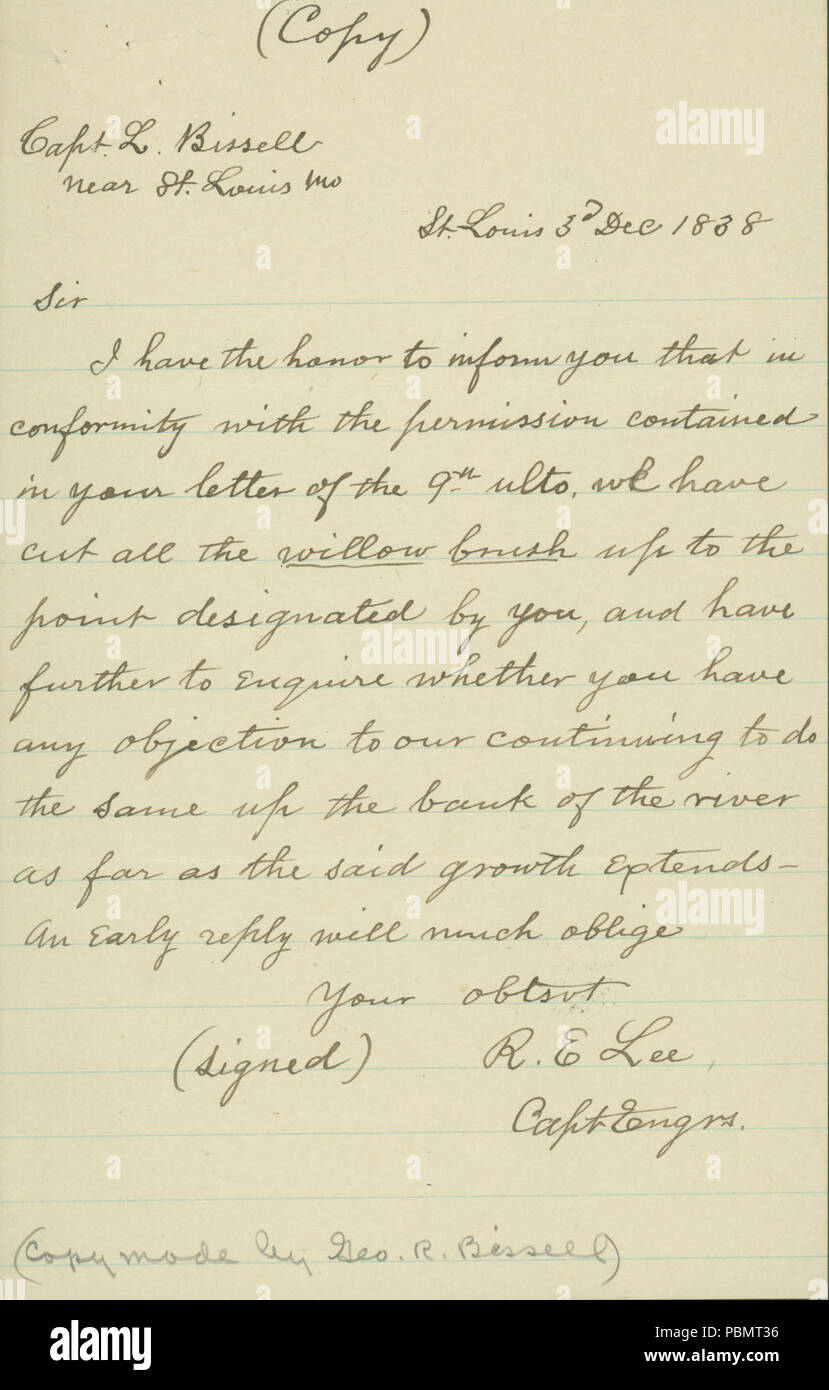 (Copy)
Capt. L. Bissell
near St. Louis Mo
St. Louis 3d Dec 1838
Sir
I have the honor to inform you that in
conformity with the permission contained
in your letter of the 9th ulto. we have
cut all the willow brush up to the
point designated by you, and have
further to enquire whether you have
any objection to our continuing to do
the same up the bank of the river
as far as the said growth extends—
An Early reply will much oblige
Your obtsvt
(signed) R. E Lee,
Capt Engrs.
(Copy made by Geo. R. Bissell)
alamy
Image ID: PBMT36
www.alamy.com